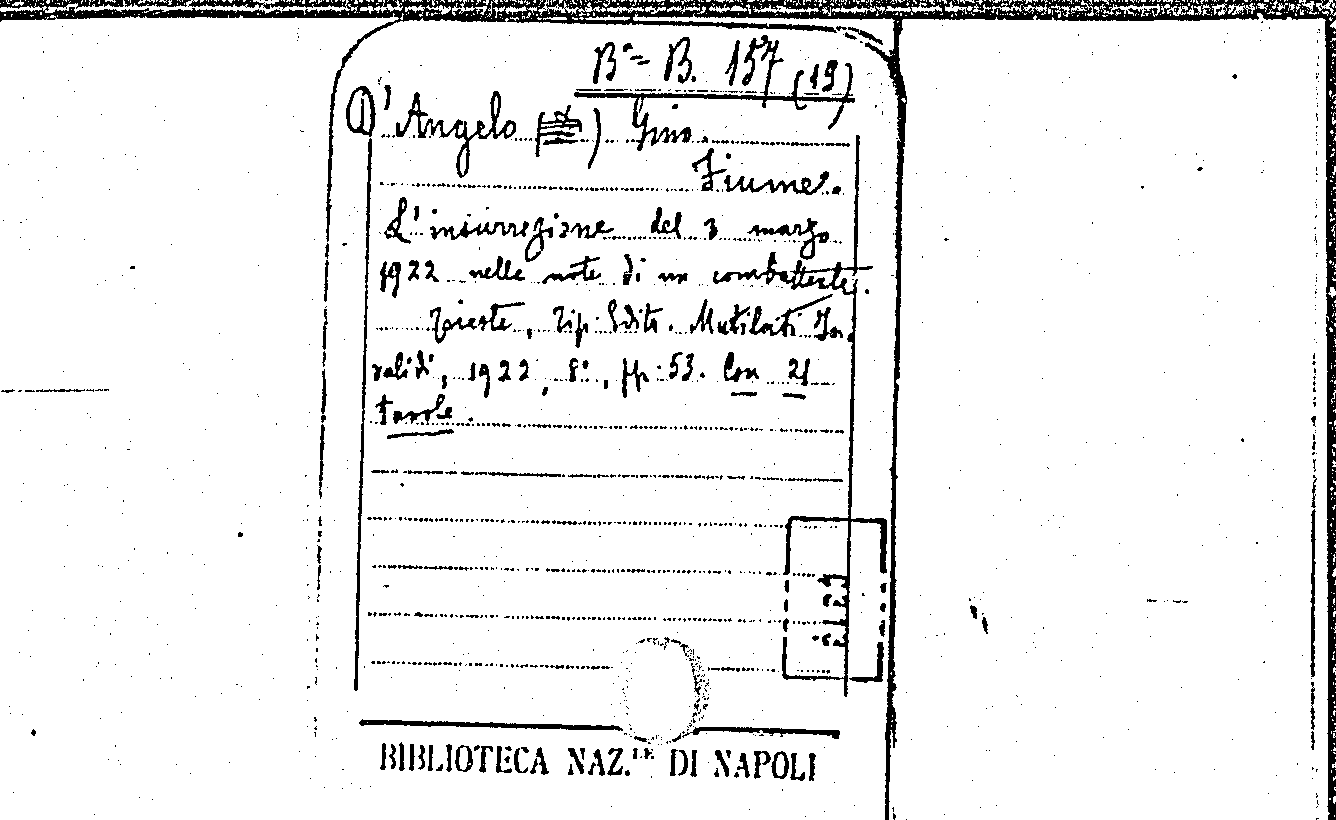 Bª= B. 157 (19)
D'Angelo ( ) Gino.
Fiume.
L'insurrezione del 3 marzo
1922 nelle note di un combattente.
Trieste, Tip. Edit. Mutilati In
validi, 1922, 8°, pp. 53. Con 21
tavole.
BIBLIOTECA NAZ.LE DI NAPOLI